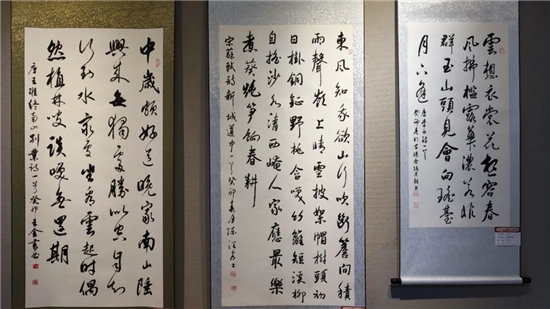 中歲頗好道晚家南山陲
興來每獨往勝事空自知
行到水窮處坐看雲起時偶
然值林叟談笑無還期
唐王維終南山別業詩一首癸卯
東風知我欲山行吹斷簷間積
雨聲嶺上晴雲披絮帽樹頭初
日掛銅鉦野桃含笑竹籬短溪柳
自搖沙水清西崦人家應最樂
煮葵燒筍餉春耕
宋蘇軾詩新城道中一首癸卯春月陳
雲想衣裳花想容春
風拂檻露華濃若非
群玉山頭見會向瑤臺
月下逢
唐李白詩一首
癸卯春於